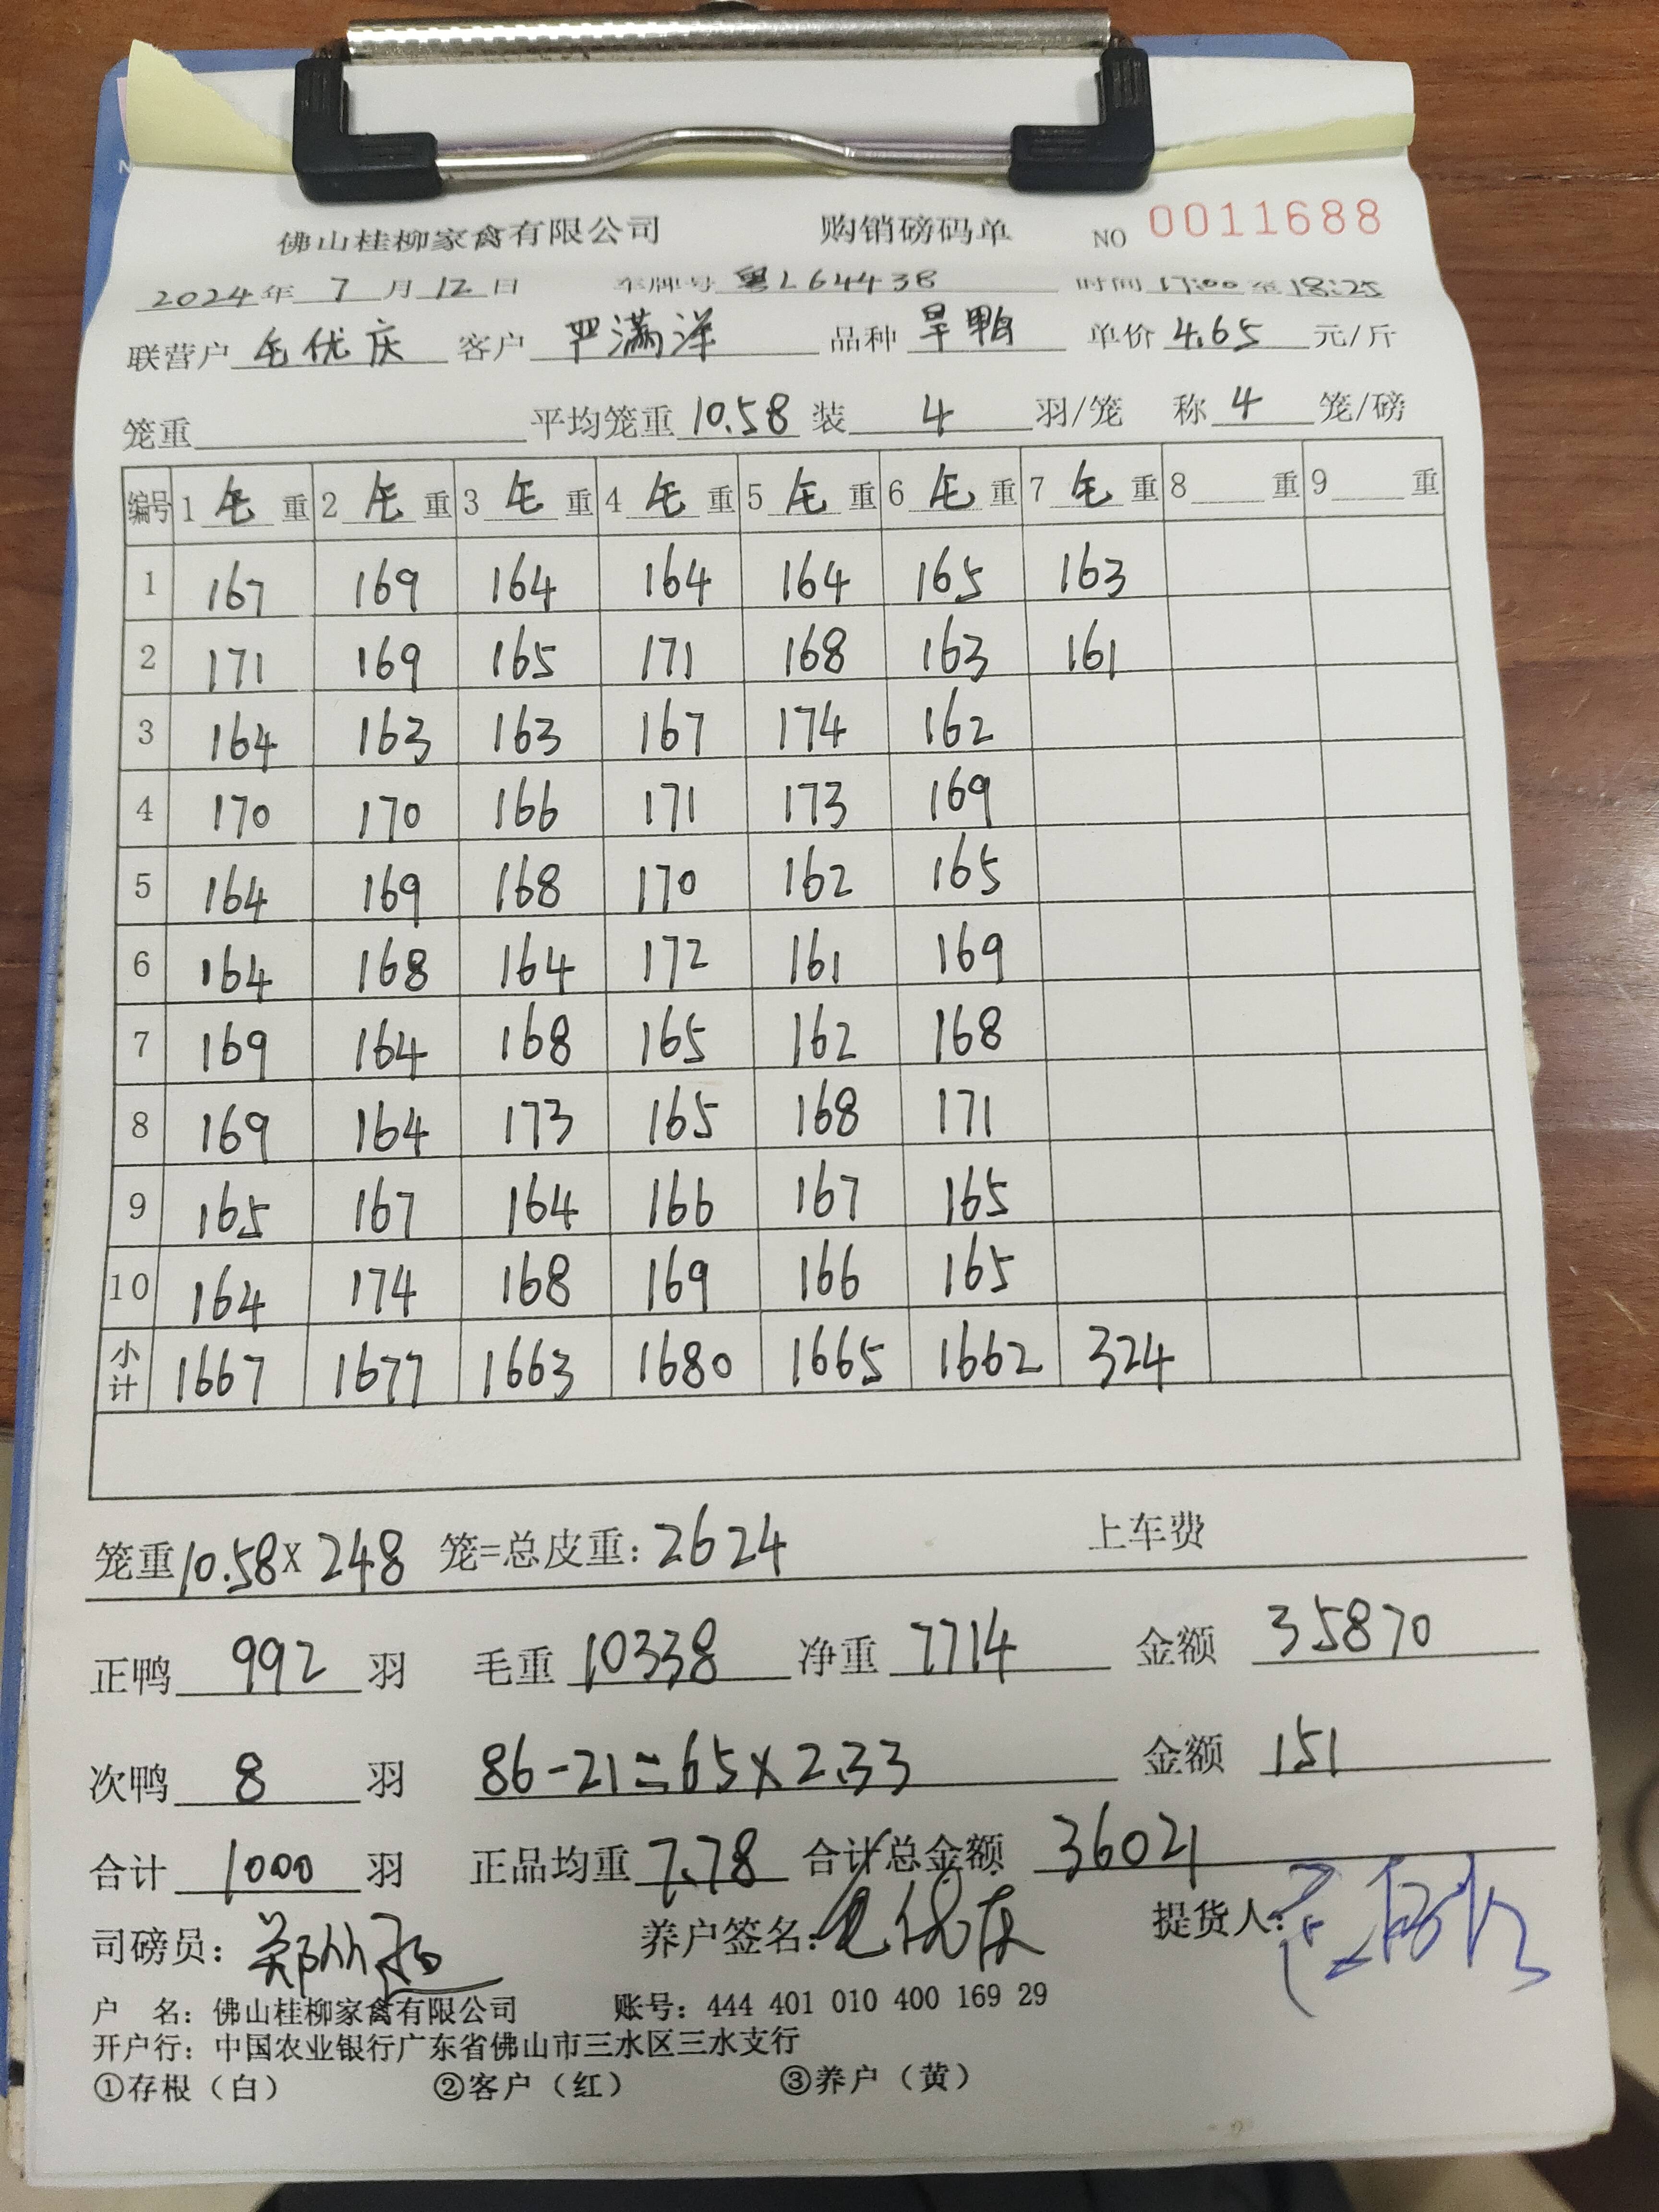 佛山桂柳家禽有限公司 购销磅码单 NO 0011688
2024年 7 月 12 日 车牌号 粤L64438 时间 17:00 至 18:25
联营户 毛优庆 客户 严满洋 品种 旱鸭 单价 4.65 元/斤
笼重 平均笼重 10.58 装 4 羽/笼 称 4 笼/磅
编号 1 毛 重 2 毛 重 3 毛 重 4 毛 重 5 毛 重 6 毛 重 7 毛 重 8 重 9 重
1 167 169 164 164 164 165 163
2 171 169 165 171 168 163 161
3 164 163 163 167 174 162
4 170 170 166 171 173 169
5 164 169 168 170 162 165
6 164 168 164 172 161 169
7 169 164 168 165 162 168
8 169 164 173 165 168 171
9 165 167 164 166 167 165
10 164 174 168 169 166 165
小计 1667 1677 1663 1680 1665 1662 324
笼重 10.58 X 248 笼=总皮重: 2624 上车费
正鸭 992 羽 毛重 10338 净重 7714 金额 35870
次鸭 8 羽 86-21=65X2.33 金额 151
合计 1000 羽 正品均重 7.78 合计总金额 36021
司磅员: 养户签名: 毛优庆 提货人:
户 名: 佛山桂柳家禽有限公司 账号: 444 401 010 400 169 29
开户行: 中国农业银行广东省佛山市三水区三水支行
①存根（白） ②客户（红） ③养户（黄）